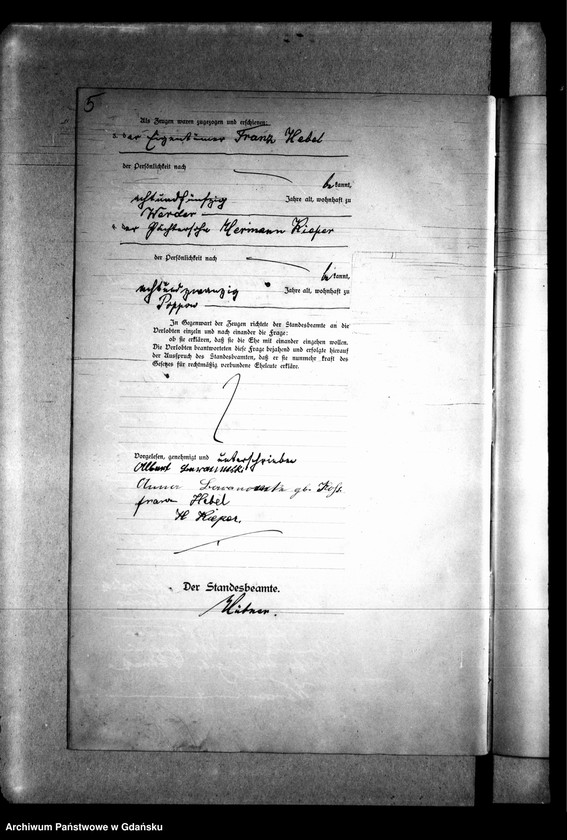 5
Als Zeugen waren zugezogen und erschienen:
der Eigentümer Franz Hebel
der Persönlichkeit nach
bekannt,
achtundfünfzig Jahre alt, wohnhaft zu
Werder
der Pächtersohn Hermann Kieper
der Persönlichkeit nach
bekannt,
achtundzwanzig Jahre alt, wohnhaft zu
Poppow
In Gegenwart der Zeugen richtete der Standesbeamte an die
Verlobten einzeln und nach einander die Frage:
ob sie erklären, daß sie die Ehe mit einander eingehen wollen.
Die Verlobten beantworteten diese Frage bejahend und erfolgte hierauf
der Ausspruch des Standesbeamten, daß er sie nunmehr kraft des
Gesetzes für rechtmäßig verbundene Eheleute erkläre.
Vorgelesen, genehmigt und unterschrieben
Albert
Anna gb.
Franz Hebel
H Kieper.
Der Standesbeamte.
Archiwum Państwowe w Gdańsku